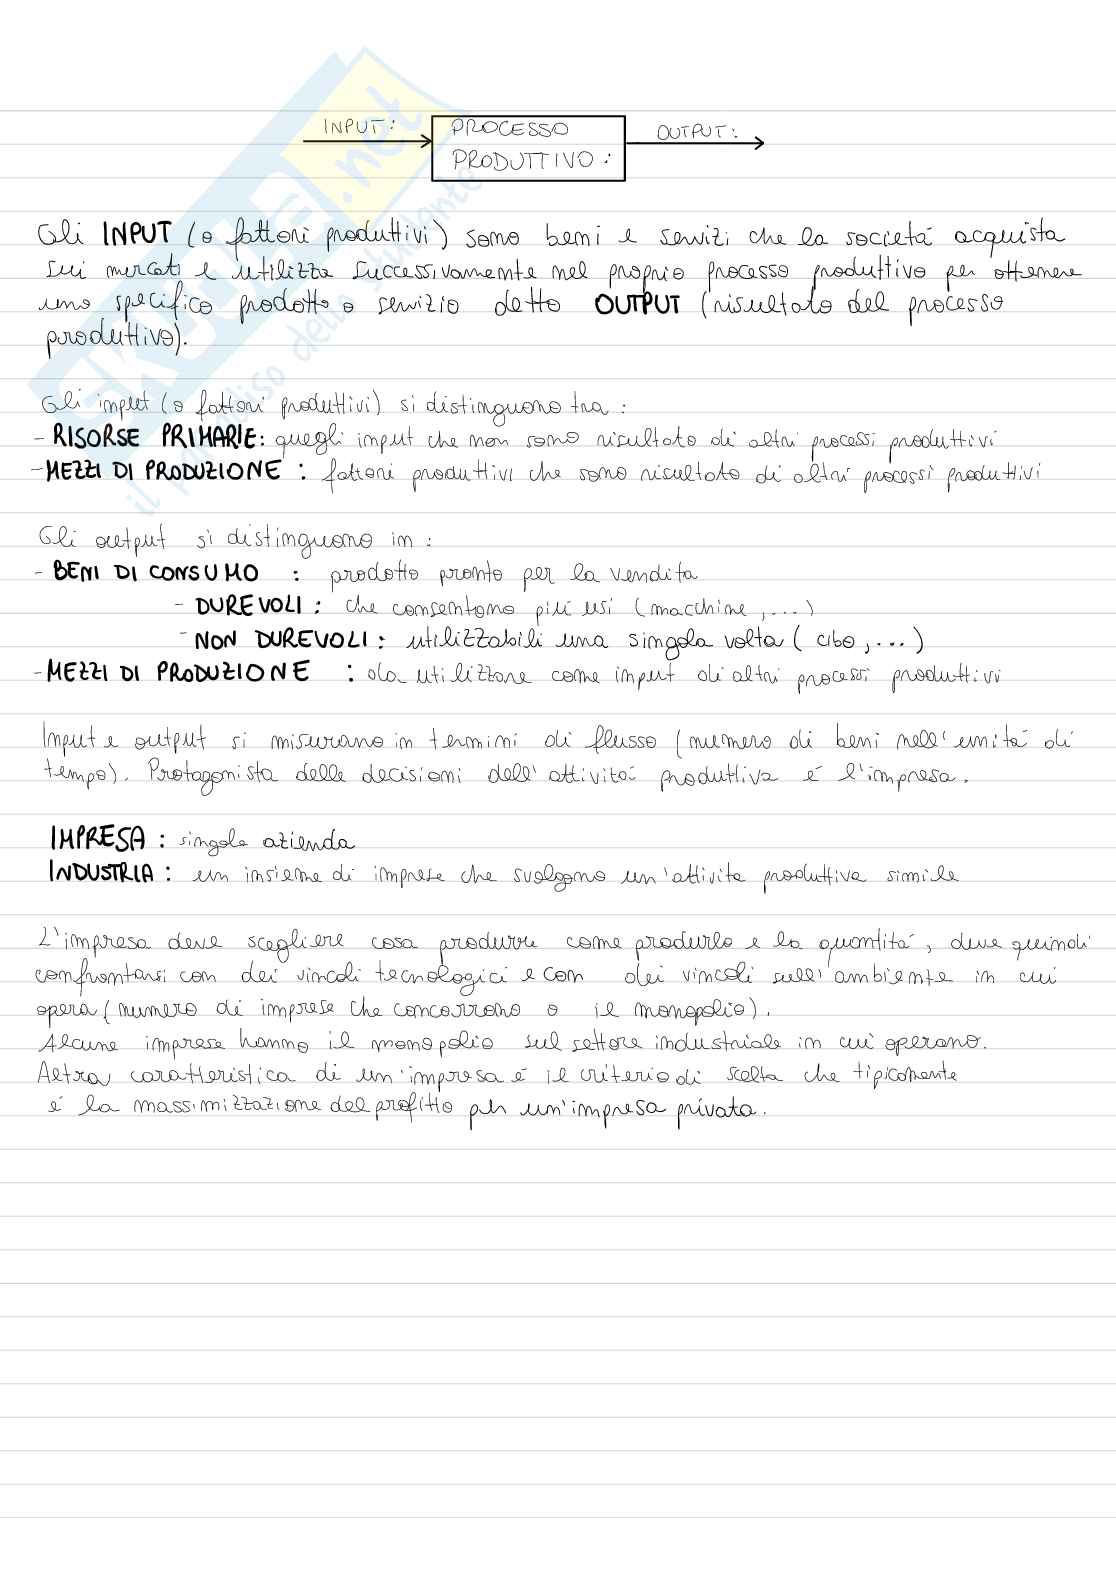 INPUT: PROCESSO OUTPUT:
PRODUTTIVO:
Gli INPUT (o fattori produttivi) sono beni e servizi che la societá acquista
sui mercati e utilizza successivamente nel proprio processo produttivo per ottenere
uno specifico prodotto o servizio detto OUTPUT (risultato del processo
produttivo).
Gli input (o fattori produttivi) si distinguono tra:
- RISORSE PRIMARIE: quegli input che non sono risultato di altri processi produttivi
- MEZZI DI PRODUZIONE: fattori produttivi che sono risultato di altri processi produttivi
Gli output si distinguono in:
- BENI DI CONSUMO : prodotto pronto per la vendita
- DUREVOLI: che consentono piú usi (macchine,...)
- NON DUREVOLI: utilizzabili una singola volta (cibo,...)
- MEZZI DI PRODUZIONE : da utilizzare come input di altri processi produttivi
Input e output si misurano in termini di flusso (numero di beni nell'unitá di
tempo). Protagonista delle decisioni dell'attivitá produttiva é l'impresa.
IMPRESA: singola azienda
INDUSTRIA: un insieme di imprese che svolgono un'attivita produttiva simile
L'impresa deve scegliere cosa produrre come produrlo e la quantitá, deve quindi
confrontarsi con dei vincoli tecnologici e con dei vincoli sull'ambiente in cui
opera (numero di imprese che concorrono o il monopolio).
Alcune imprese hanno il monopolio sul settore industriale in cui operano.
Altra caratteristica di un'impresa é il criterio di scelta che tipicamente
é la massimizzazione del profitto per un'impresa privata.
skuola.net
il paradiso dello studente